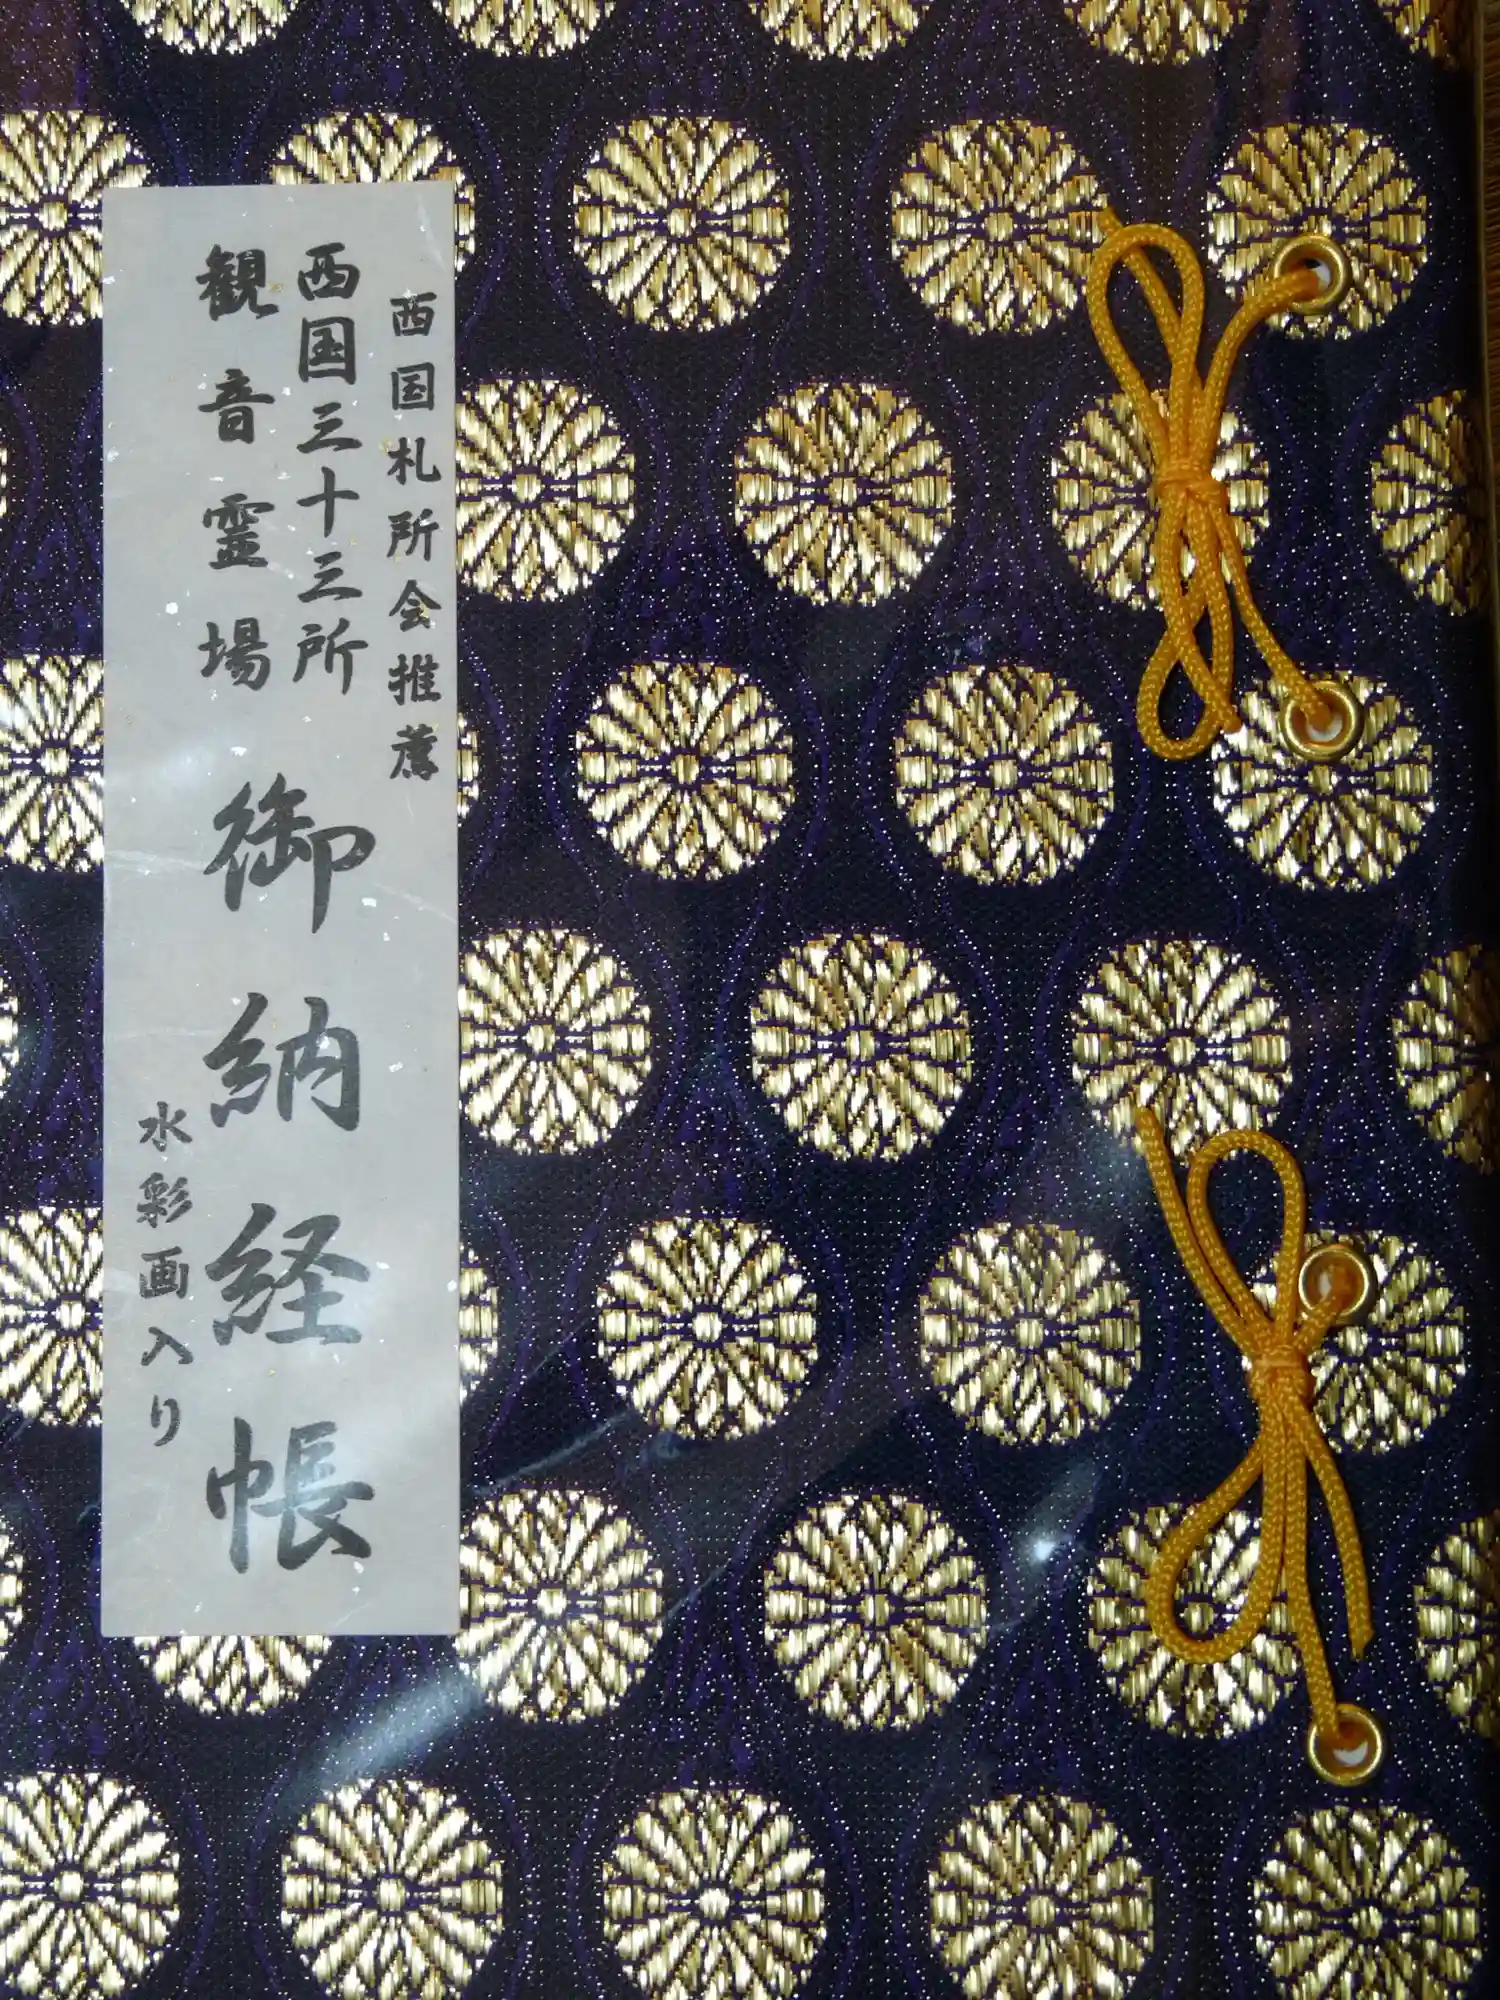 西国札所会推薦
西国三十三所
観音霊場
御納経帳
水彩画入り